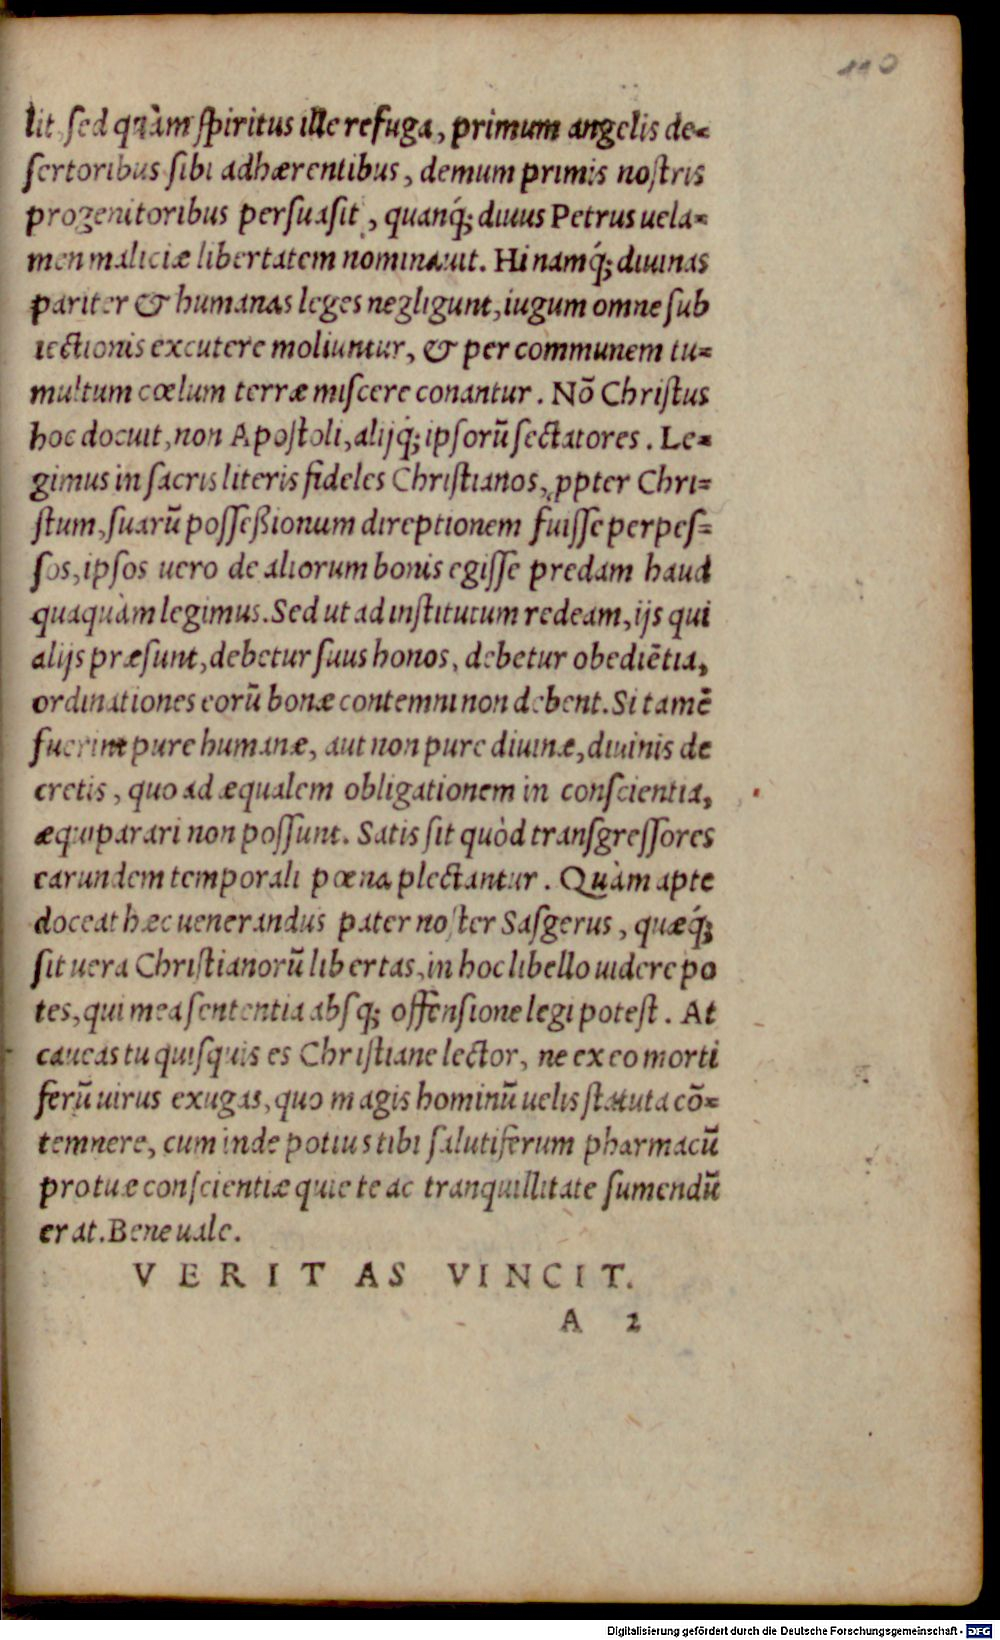 110
lit, sed quàm spiritus ille refuga, primum angelis de=
sertoribus sibi adhærentibus, demum primis nostris
progenitoribus persuasit, quanq́; diuus Petrus uela=
men maliciæ libertatem nominauit. Hi namq́; diuinas
pariter & humanas leges negligunt, iugum omne sub
iectionis excutere moliuntur, & per communem tu=
multum cœlum terræ miscere conantur. Nō Christus
hoc docuit, non Apostoli, alijq́; ipsorū sectatores. Le=
gimus in sacris literis fideles Christianos, ꝓpter Chri=
stum, suarū posseßionum direptionem fuisse perpes=
sos, ipsos uero de aliorum bonis egisse predam haud
quaquàm legimus. Sed ut ad institutum redeam, ijs qui
alijs præsunt, debetur suus honos, debetur obediētia,
ordinationes eorū bonæ contemni non debent. Si tamē
fuerint pure humanæ, aut non pure diuinæ, diuinis de
cretis, quo ad æqualem obligationem in conscientia,
æquiparari non possunt. Satis sit quòd transgressores
earundem temporali pœna plectantur. Quàm apte
doceat hæc uenerandus pater noster Sasgerus, quæq́;
sit uera Christianorū libertas, in hoc libello uidere po
tes, qui mea sententia absq; offensione legi potest. At
caueas tu quisquis es Christiane lector, ne ex eo morti
ferū uirus exugas, quo magis hominū uelis statuta cō=
temnere, cum inde potius tibi salutiferum pharmacū
pro tuæ conscientiæ quiete ac tranquillitate sumendū
erat. Bene uale.
VERITAS VINCIT.
A 2
Digitalisierung gefördert durch die Deutsche Forschungsgemeinschaft - DFG